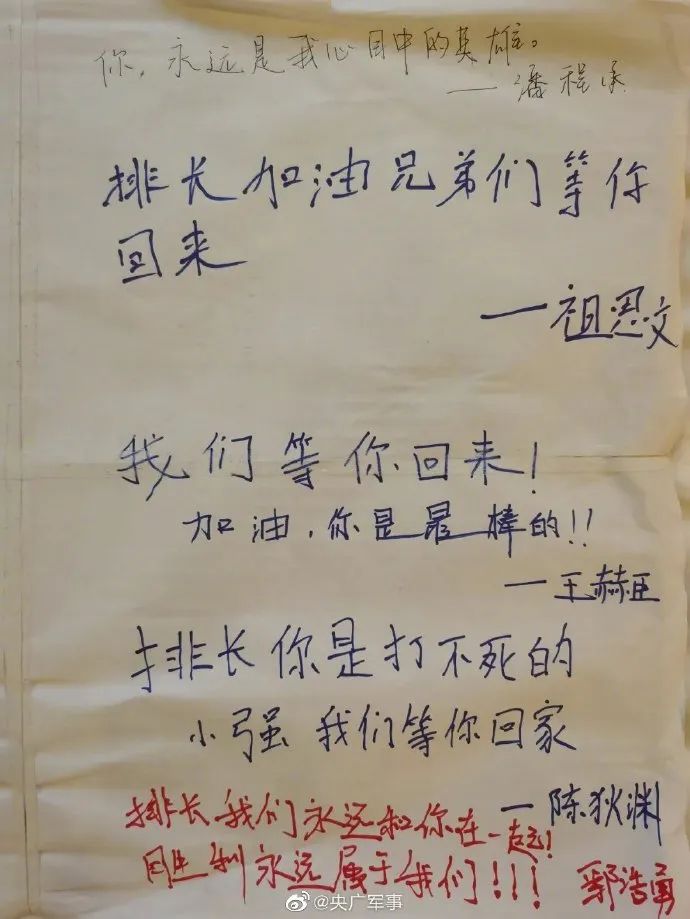 你，永远是我心目中的英雄。
——潘程承
排长加油兄弟们等你
回来
——祖恩文
我们等你回来！
加油，你是最棒的!!
——王赫臣
排长你是打不死的
小强 我们等你回家
——陈狄渊
排长我们永远和你在一起！
胜利永远属于我们！！！
鄢浩勇
@央广军事